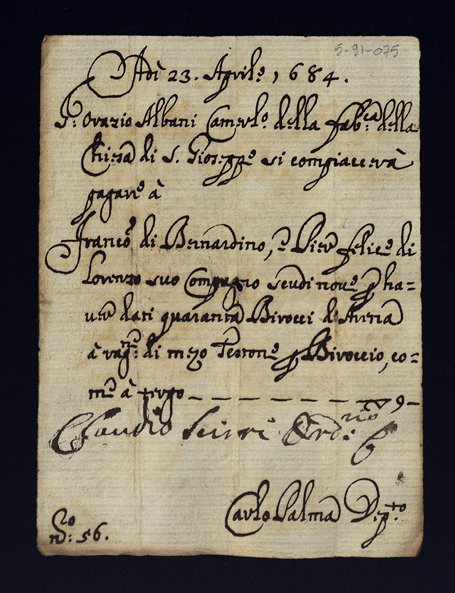 5-91-075
Adi 23. Aprile 1684.
S.r Orazio Albani Camerl.o della fab.ca della
Chiesa di S. Gioseppe si compiacerà
pagare à
Franc.o di Bernardino, e Pier felice di
Lorenzo suo Compagno scudi nove p ha-
ver dati quaranta Birocci di Arena
à rag.ne di mezo Testone p Biroccio, co-
me à tergo 9-
Claudio
Carlo Palma Dep.to
N.o 56.